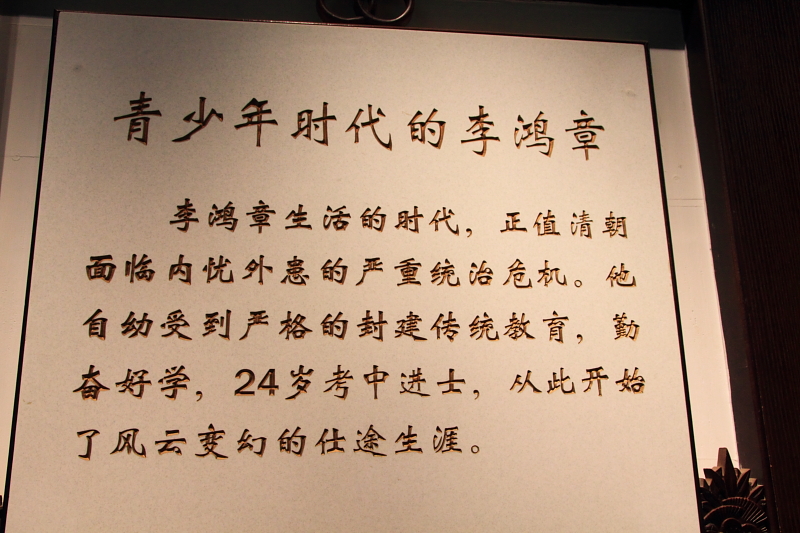 青少年时代的李鸿章
李鸿章生活的时代，正值清朝
面临内忧外患的严重统治危机。他
自幼受到严格的封建传统教育，勤
奋好学，24岁考中进士，从此开始
了风云变幻的仕途生涯。